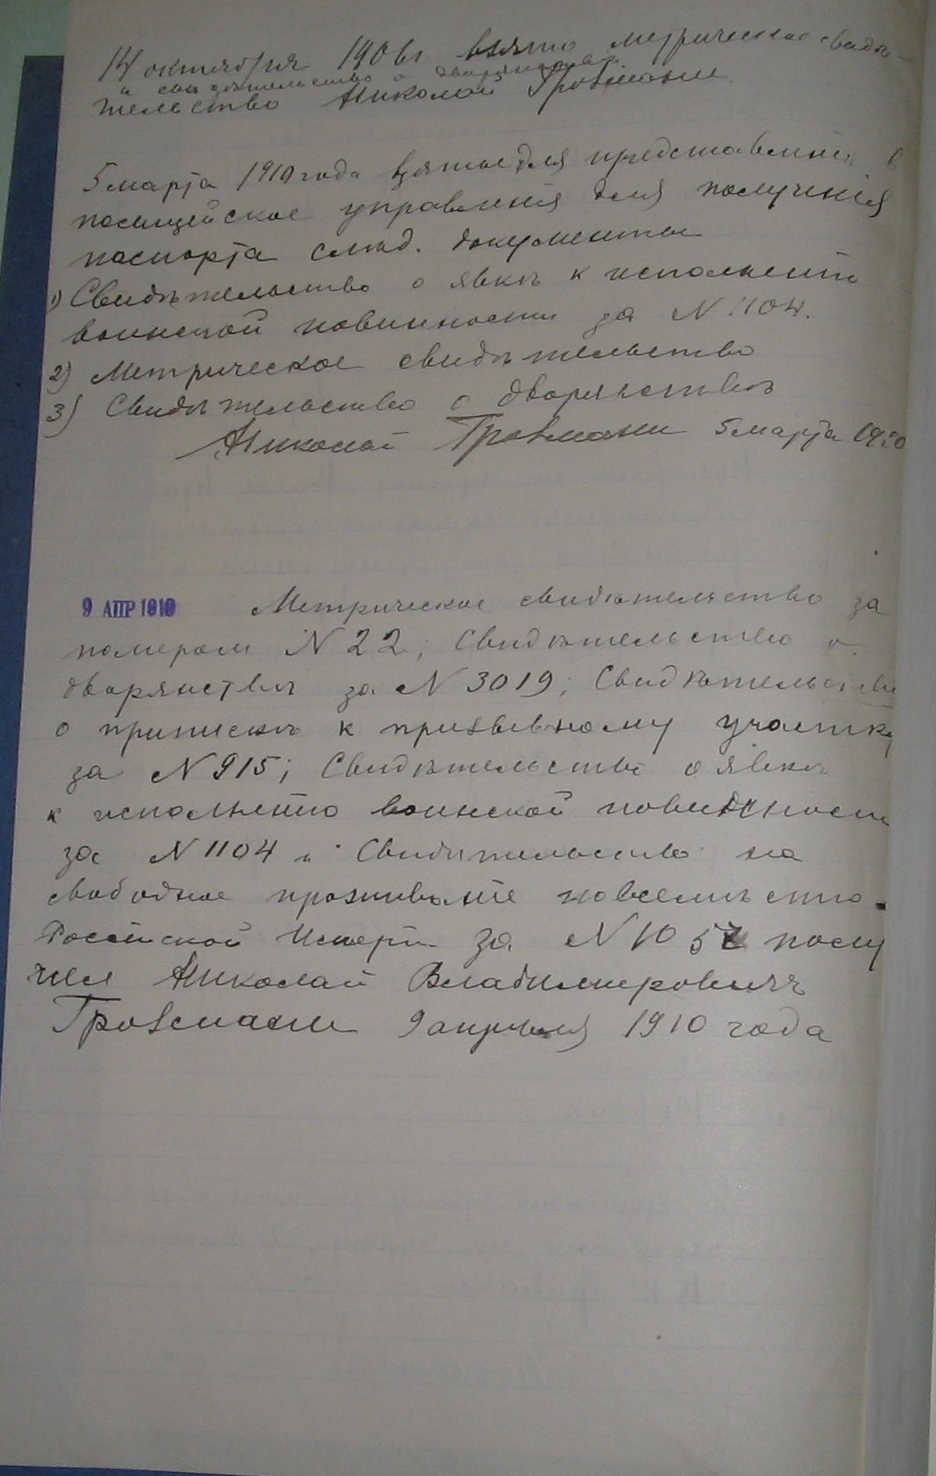 14 октября 190 г. взято метрическое свидѣ-
и свидѣтельство о дворянствѣ
тельство Николай Гровманн
5 марта 1910 года взятые для представленія в
полицейское управленія для полученія
паспорта слѣд. документы
1) Свидѣтельство о явкѣ к исполненію
воинской повинности за N 1104.
2) Метрическое свидѣтельство
3) Свидѣтельство о дворянствѣ
Николай Гровманн 5 марта 1910
9 АПР 1910 Метрическое свидѣтельство за
номером N 22; Свидѣтельство о
дворянствѣ за N 3019; Свидѣтельство
о припискѣ к призывному участку
за N 915; Свидѣтельство о явкѣ
к исполненію воинской повинности
за N 1104 и Свидѣтельство на
свободное проживаніе повсемѣстно
Россійской Импері за N 105 полу
чил Николай Владимировичъ
Гровманн 9 апрѣля 1910 года